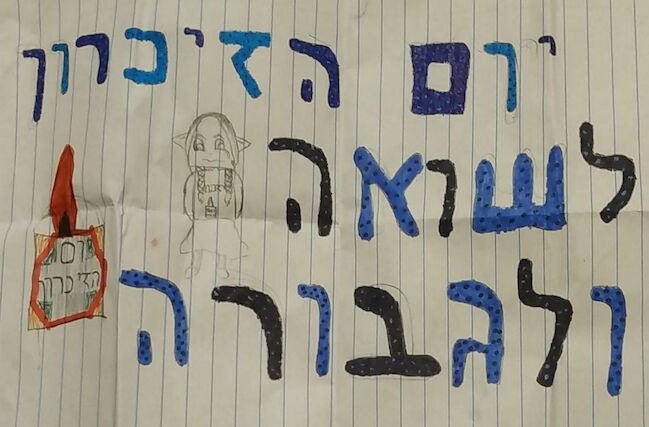 יום הזיכרון
לשואה
ולגבורה
יום
הזיכרון